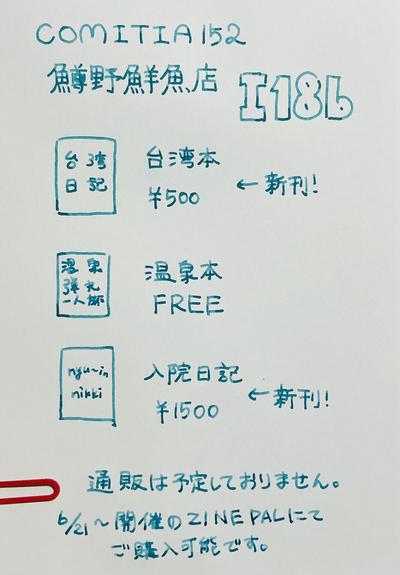 COMITIA152
鱒野鮮魚店
I18b
台湾
日記
台湾本
¥500
←新刊!
温泉
弾丸
一人旅
温泉本
FREE
nyu〜in
nikki
入院日記
¥1500
←新刊!
通販は予定しておりません。
6/21〜開催のZINE PALにて
ご購入可能です。